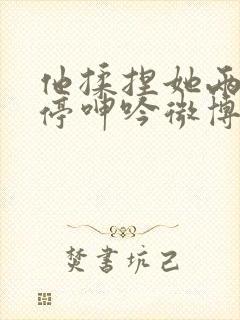 他揉捏她两
停呻吟微博
焚书坑己